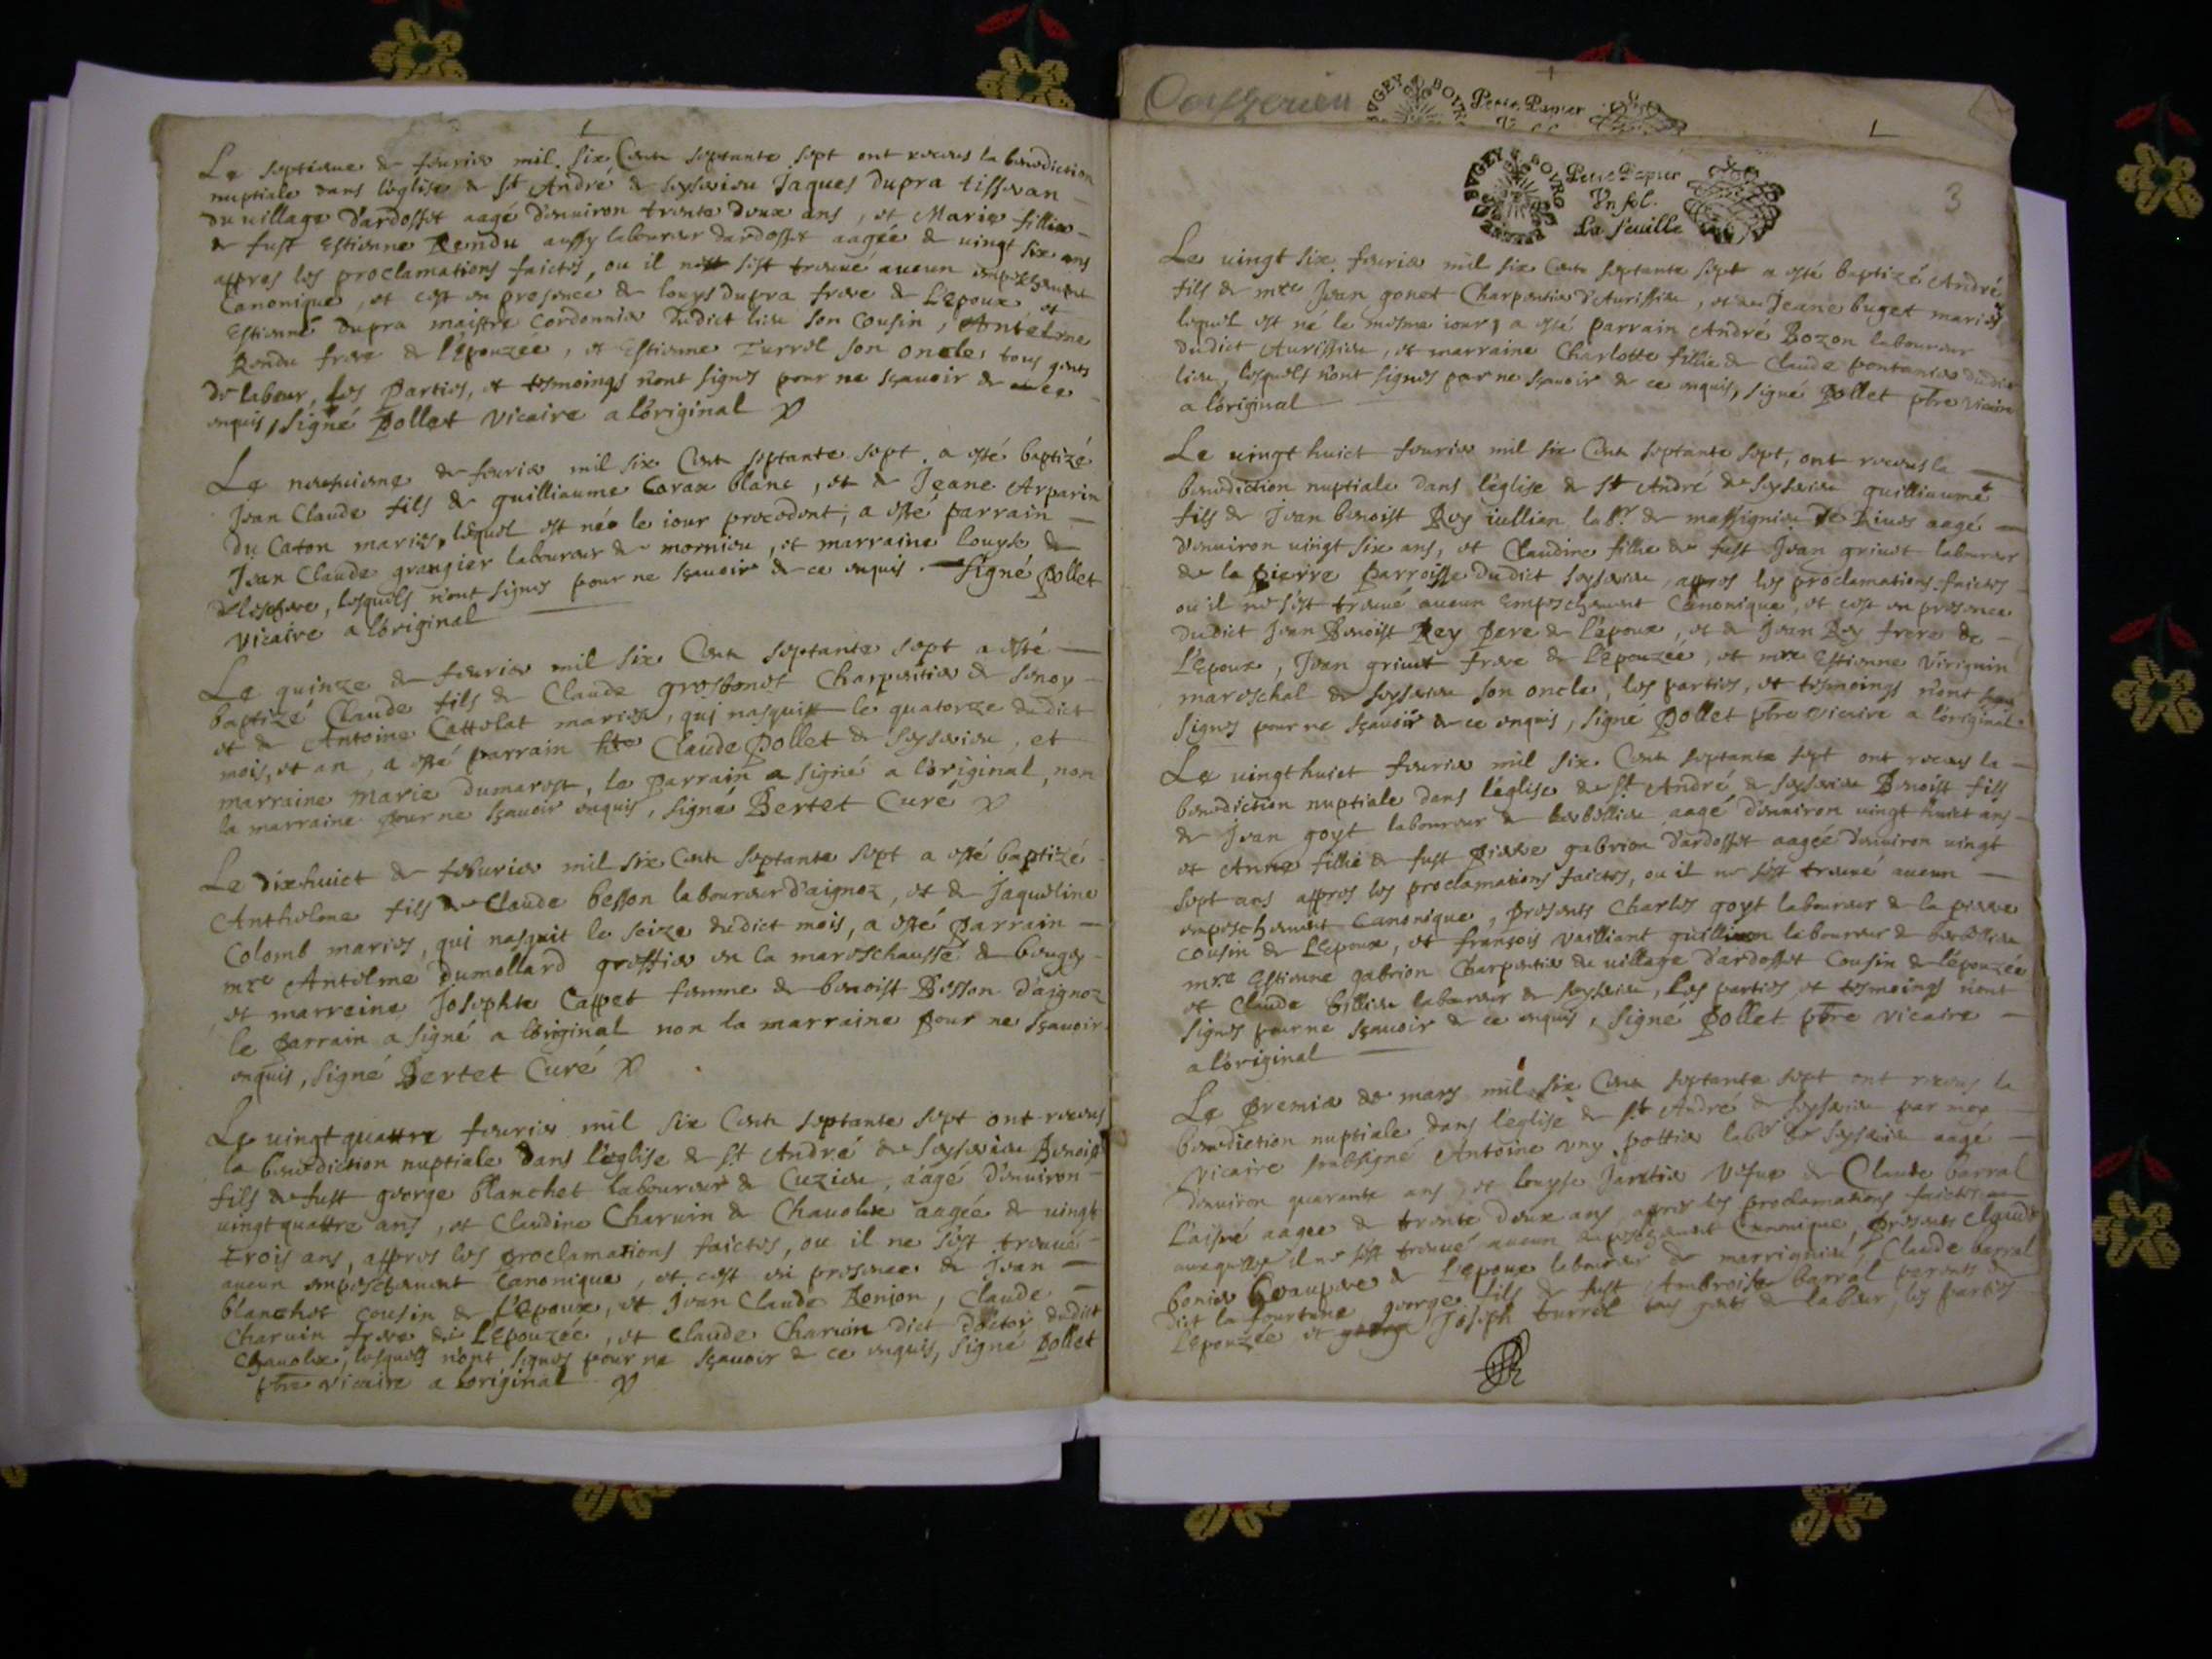 Le septiesme de feurier mil six Cents septante sept ont receus la benediction
nuptiale dans l'eglise de St André de seyserieu Jaques Dupra tisseran
du uillage d'ardosset aagé d'enuiron trente deux ans, et Marie fillie
de fust Estienne Rendu aussy laboureur dardosset aagée de uingt six ans
appres les proclamations faictes, ou il ne sist trouué aucun empeschement
Canonique, et cest en presence de louys dupra frere de L'Epoux et
Estienne Dupra maistre Cordonnier dudict lieu son Cousin, Antelme
Rendu frere de l'Epouzee, et Estienne Turrel son oncle, tous gents
de labeur, Les Parties, et tesmoings n'ont signes pour ne sçauoir de ce
enquis, signé Pollet Vicaire a l'original
Le neufuiesme de feurier mil six Cents septante sept a esté baptizé
Jean Claude fils de guilliaume Carax blanc, et de Jeane Arparin
du Caton maries, lequel est née le iour precedent, a esté parrain
Jean Claude grangier laboureur de mornieu, et marraine louyse
lesquels n'ont signes pour ne sçauoir de ce enquis. Signé Pollet
Vicaire a l'original
Le quinze de feurier mil six Cents septante sept a esté
baptizé Claude fils de Claude Charpentier de
et de Antoine Cattolat maries, qui nasquist le quatorze dudict
mois, et an, a esté parrain Claude Pollet de seyserieu, et
marraine Marie Dumarest, le Parrain a signé a l'original, non
la marraine pour ne sçauoir enquis, signé Bertet Curé
Le dixhuict de feburier mil six Cents septante sept a esté baptizé
Anthelme fils de Claude besson laboureur d'aignoz, et de Jaqueline
Colomb maries, qui nasquit le seize dudict mois, a esté Parrain
mre Antelme Dumollard greffier en la mareschaussé de beugey
et marreine Josephte Cappet femme de benoist Besson d'aignoz
le Parrain a signé a l'original non la marraine Pour ne sçauoir
enquis, signé Bertet Curé
Le uingt quattre feurier mil six Cents septante sept ont receus
la benediction nuptiale dans l'eglise de St André de seyserieu Benoist
fils de fust george blanchet laboureur de Cuzieu, aagé d'enuiron
uingt quattre ans, et Claudine Charuin de Chauolex aagée de uingt
trois ans, appres les proclamations faictes, ou il ne sest trouué
aucun empeschement Canonique, et cest en presence de Jean
blanchet cousin de L'Epoux, et Jean Claude Bonion, Claude
Charuin frere de L'Epouzée, et Claude Charuin dict doctor dudict
Chauolex, lesquels n'ont signes pour ne sçauoir de ce enquis, signé Pollet
ptre vicaire a l'original
BVGEY BOVRG
Petit Papier
BVGEY BOVRG
Petit Papier
Vn sol.
La feuille
3
Le uingt six feurier mil six Cents septante sept a esté baptizé André
fils de mre Jean gonet Charpentier d'Aurissieu, et de Jeane buget maries
lequel est né le mesme iour, a esté parrain André Bozon laboureur
dudict Aurissieu, et marraine Charlotte fillie de Claude pontanier dudict
lieu, lesquels n'ont signes par ne sçauoir de ce enquis, signé Pollet ptre Vicaire
a l'original
Le uingt huict feurier mil six Cents septante sept, ont receus la
benediction nuptiale dans l'eglise de St André de seyserieu guilliaume
fils de Jean benoist Rey iullien labr de massignieu de Riues aagé
d'enuiron uingt six ans, et Claudine fillie de fust Jean griuet laboureur
de la pierre Parroisse dudict seyserieu, appres les proclamations faictes
ou il ne sist trouué aucun Empeschement Canonique, et cest en presence
dudict Jean Benoist Rey Pere de l'epoux, et de Jean Rey frere de
L'Epoux, Jean griuet frere de L'Epouzee, et mre Estienne Virignin
mareschal de seyserieu son oncle, les parties, et tesmoings n'ont
signes pour ne sçauoir de ce enquis, signé Pollet ptre vicaire a l'original
Le uingt huict feurier mil six Cents septante sept ont receus la
benediction nuptiale dans l'eglise de St André de seyserieu Benoist fils
de Jean goyt laboureur de aagé d'enuiron uingt huict ans
et Anne fillie de fust Pierre gabrion d'ardosset aagée d'enuiron uingt
sept ans appres les proclamations faictes, ou il ne sist trouué aucun
empeschement Canonique, presents Charles goyt laboureur de la pierre
cousin de L'Epoux, et françois Vailliant laboureur de
mre Estienne gabrion Charpentier du uillage d'ardosset Cousin de l'épouzée
et Claude billieu laboureur de seyserieu, Les parties, et tesmoings n'ont
signes pour ne sçauoir de ce enquis, signé Pollet ptre Vicaire
a l'original
Le Premier de mars mil six Cents septante sept ont receus la
benediction nuptiale dans l'eglise de St André de seyserieu par moy
Vicaire soubsigné Antoine vny pottier labr de seyserieu aagé
d'enuiron quarante ans, et louyse Vefue de Claude barral
L'aisné aagee de trente deux ans, appres les proclamations faictes
il ne sist trouué aucun empeschement Canonique, presents Claude
bonier beaupere de L'Epoux laboureur de marrignieu, Claude barral
dict la fourtune george fils de fust Ambroise barral parents de
L'Epouzée et Joseph turrel tous gents de labeur, les parties